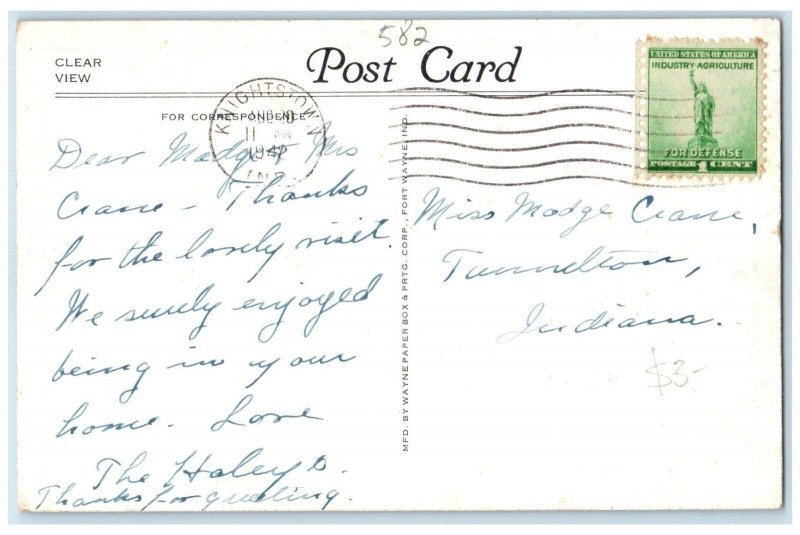 582
CLEAR
VIEW
Post Card
FOR CORRESPONDENCE
KNIGHTSTOWN
11 AM
IND.
UNITED STATES OF AMERICA
INDUSTRY-AGRICULTURE
FOR DEFENSE
POSTAGE 1 CENT
Dear Madge + Mrs
Crane – Thanks
for the lovely visit.
We surely enjoyed
being in your
home. Love
The Haleys.
Thanks for greeting.
MFD. BY WAYNE PAPER BOX & PRTG. CORP., FORT WAYNE, IND.
Miss Madge Crane,
Tunnelton,
Indiana.
$3-